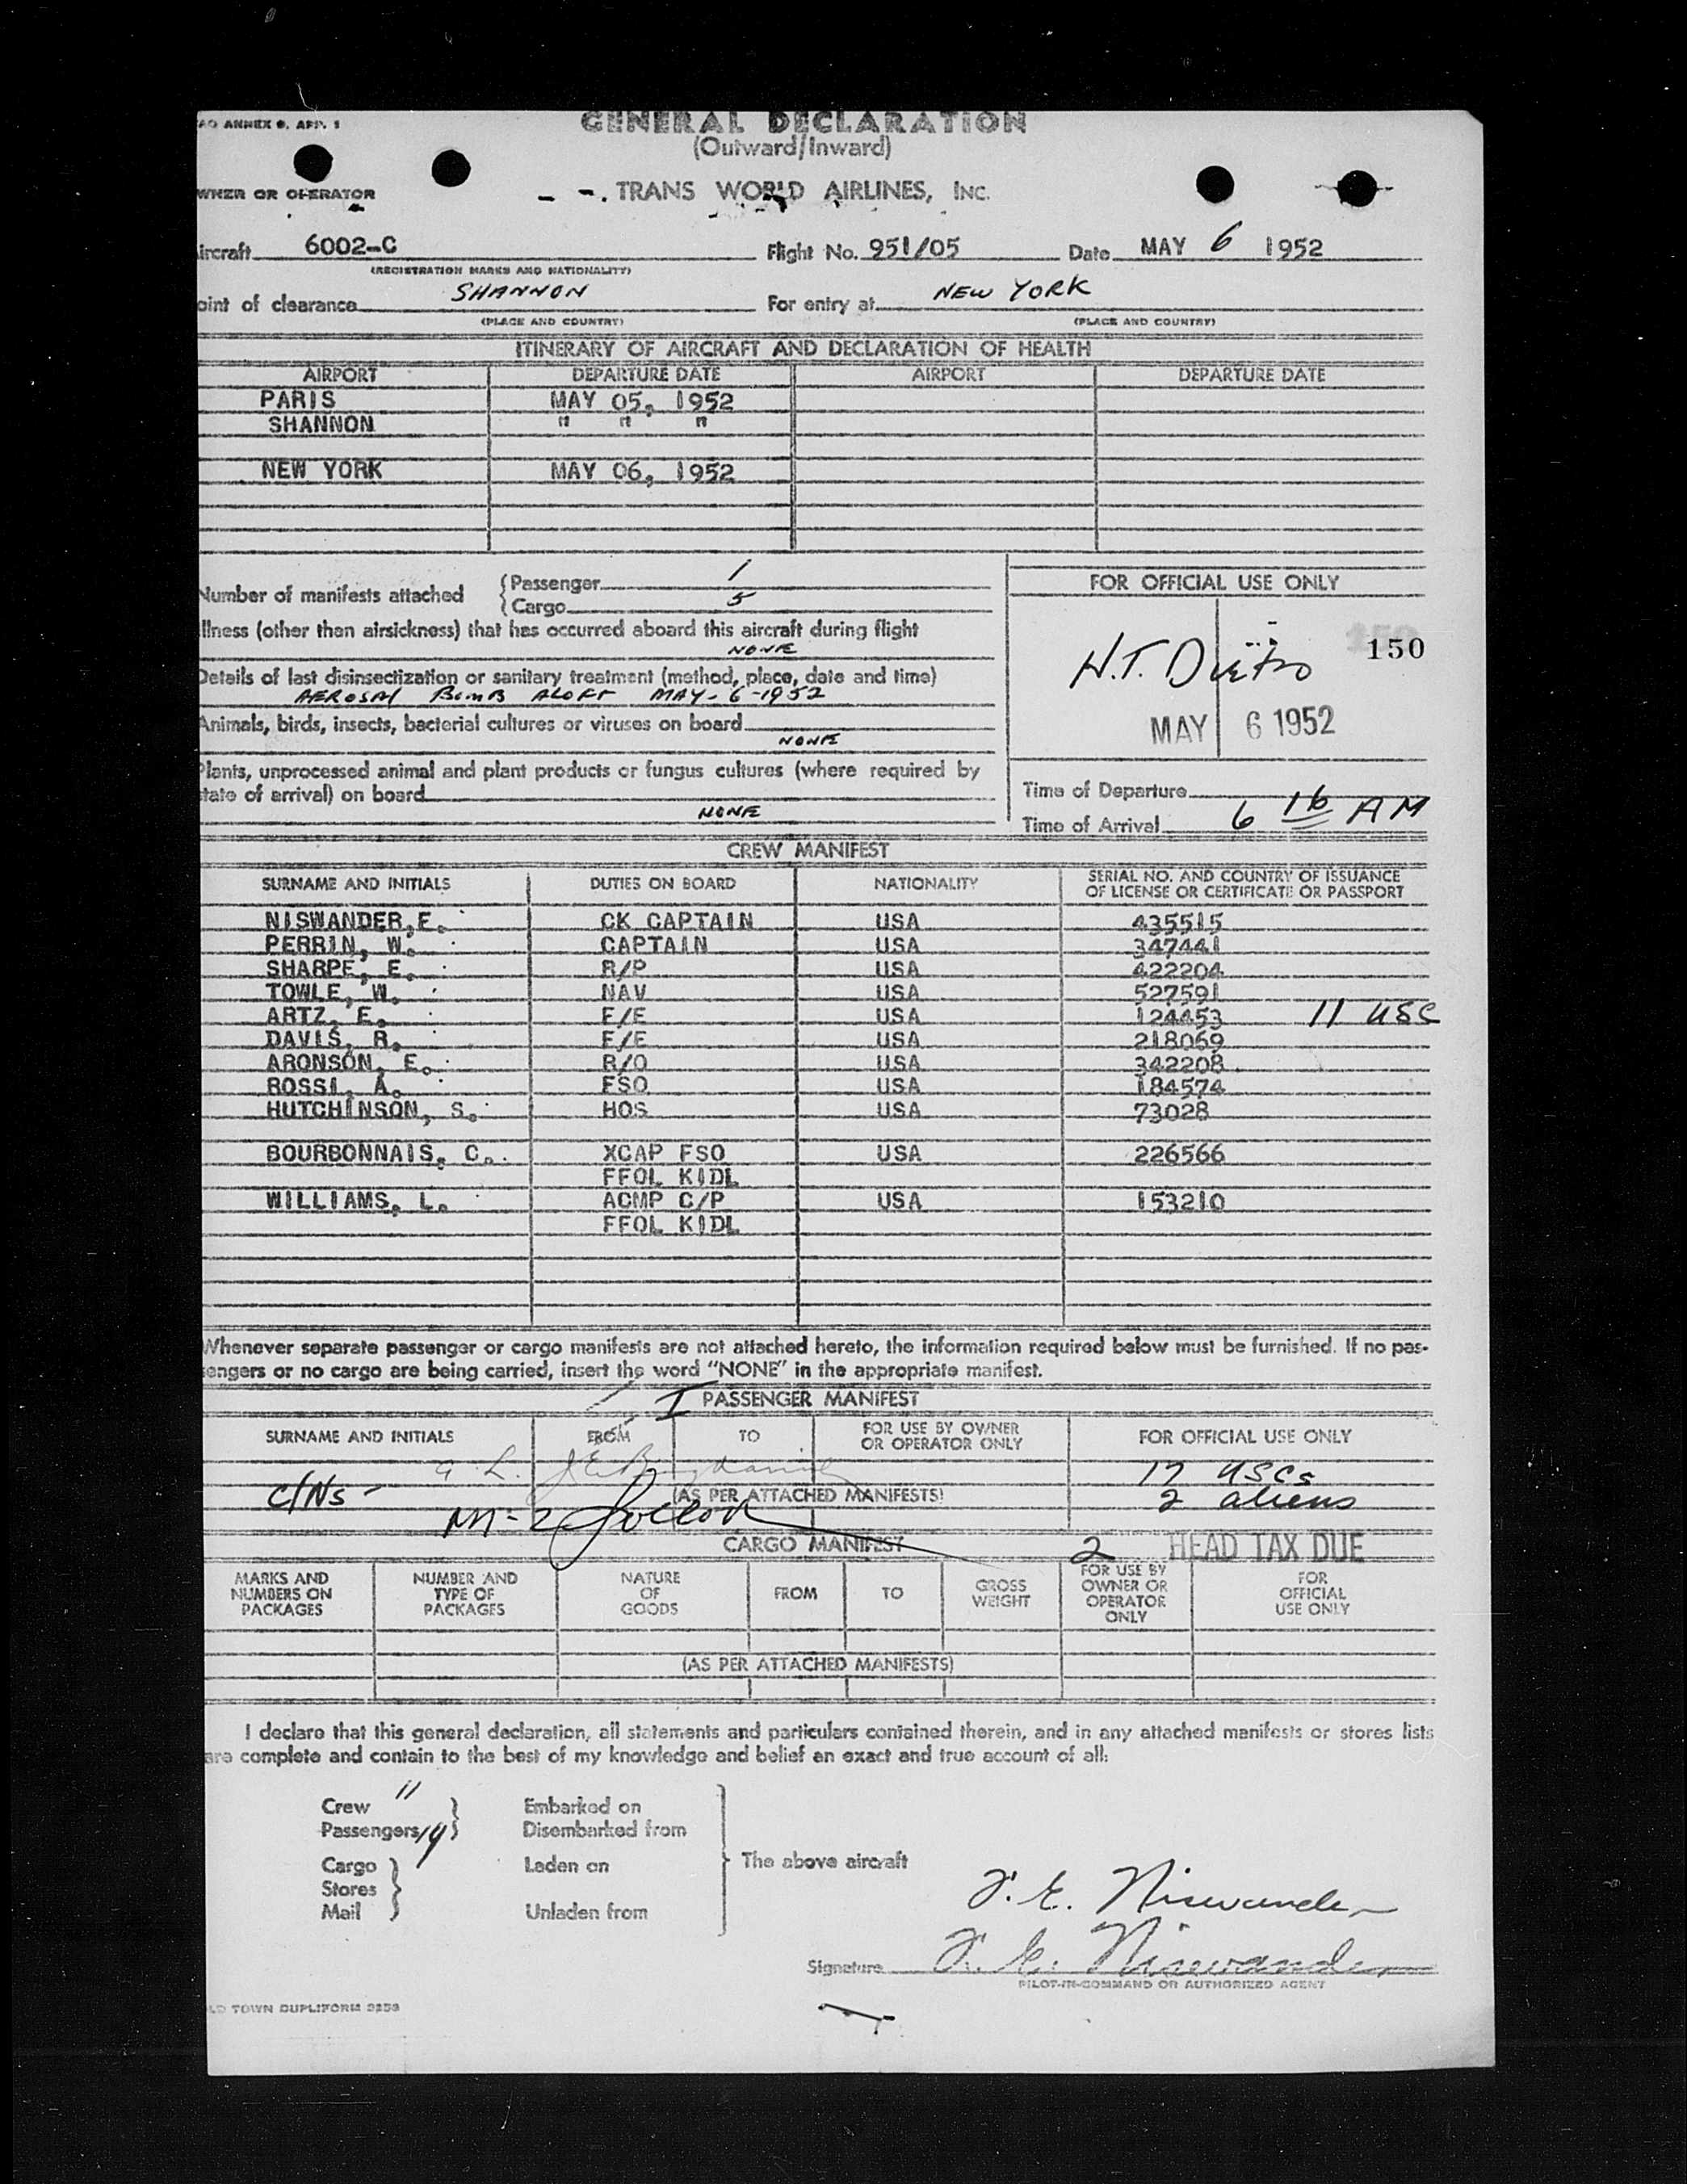 AO ANNEX 9, APP. 1
GENERAL DECLARATION
(Outward/Inward)
WNER OR OPERATOR
TRANS WORLD AIRLINES, INC.
ircraft 6002-C Flight No. 951/05 Date MAY 6 1952
(REGISTRATION MARKS AND NATIONALITY)
oint of clearance SHANNON For entry at NEW YORK
(PLACE AND COUNTRY) (PLACE AND COUNTRY)
ITINERARY OF AIRCRAFT AND DECLARATION OF HEALTH
AIRPORT DEPARTURE DATE AIRPORT DEPARTURE DATE
PARIS MAY 05, 1952
SHANNON " " "
NEW YORK MAY 06, 1952
Number of manifests attached Passenger 1
Cargo 5
llness (other than airsickness) that has occurred aboard this aircraft during flight
NONE
Details of last disinsectization or sanitary treatment (method, place, date and time)
AEROSAL BOMB ALOFT MAY-6-1952
Animals, birds, insects, bacterial cultures or viruses on board
NONE
Plants, unprocessed animal and plant products or fungus cultures (where required by
tate of arrival) on board
NONE
FOR OFFICIAL USE ONLY
150
H.T.
MAY 6 1952
Time of Departure
Time of Arrival 6 16 AM
CREW MANIFEST
SURNAME AND INITIALS DUTIES ON BOARD NATIONALITY SERIAL NO. AND COUNTRY OF ISSUANCE
OF LICENSE OR CERTIFICATE OR PASSPORT
NISWANDER,E. CK CAPTAIN USA 435515
PERRIN, W. CAPTAIN USA 347441
SHARPE, E. R/P USA 422204
TOWLE, W. NAV USA 527591
ARTZ, E. F/E USA 124453 11 USC
DAVIS, R. F/E USA 218069
ARONSON, E. R/O USA 342208
ROSSI, A. FSO USA 184574
HUTCHINSON, S. HOS USA 73028
BOURBONNAIS, C. XCAP FSO USA 226566
FFOL KIDL
WILLIAMS, L. ACMP C/P USA 153210
FFOL KIDL
Whenever separate passenger or cargo manifests are not attached hereto, the information required below must be furnished. If no pas-
engers or no cargo are being carried, insert the word "NONE" in the appropriate manifest.
I PASSENGER MANIFEST
SURNAME AND INITIALS FROM TO FOR USE BY OWNER
OR OPERATOR ONLY FOR OFFICIAL USE ONLY
17 USCs
C/Ns - (AS PER ATTACHED MANIFESTS) 2 aliens
M-2
CARGO MANIFEST 2 HEAD TAX DUE
MARKS AND
NUMBERS ON
PACKAGES
NUMBER AND
TYPE OF
PACKAGES
NATURE
OF
GOODS
FROM
TO
GROSS
WEIGHT
FOR USE BY
OWNER OR
OPERATOR
ONLY
FOR
OFFICIAL
USE ONLY
(AS PER ATTACHED MANIFESTS)
I declare that this general declaration, all statements and particulars contained therein, and in any attached manifests or stores lists
are complete and contain to the best of my knowledge and belief an exact and true account of all:
Crew 11 Embarked on
Passengers 19 Disembarked from
Cargo Laden on The above aircraft
Stores
Mail Unladen from
F. E. Niswander
Signature F. E. Niswander
PILOT-IN-COMMAND OR AUTHORIZED AGENT
LD TOWN DUPLIFORM